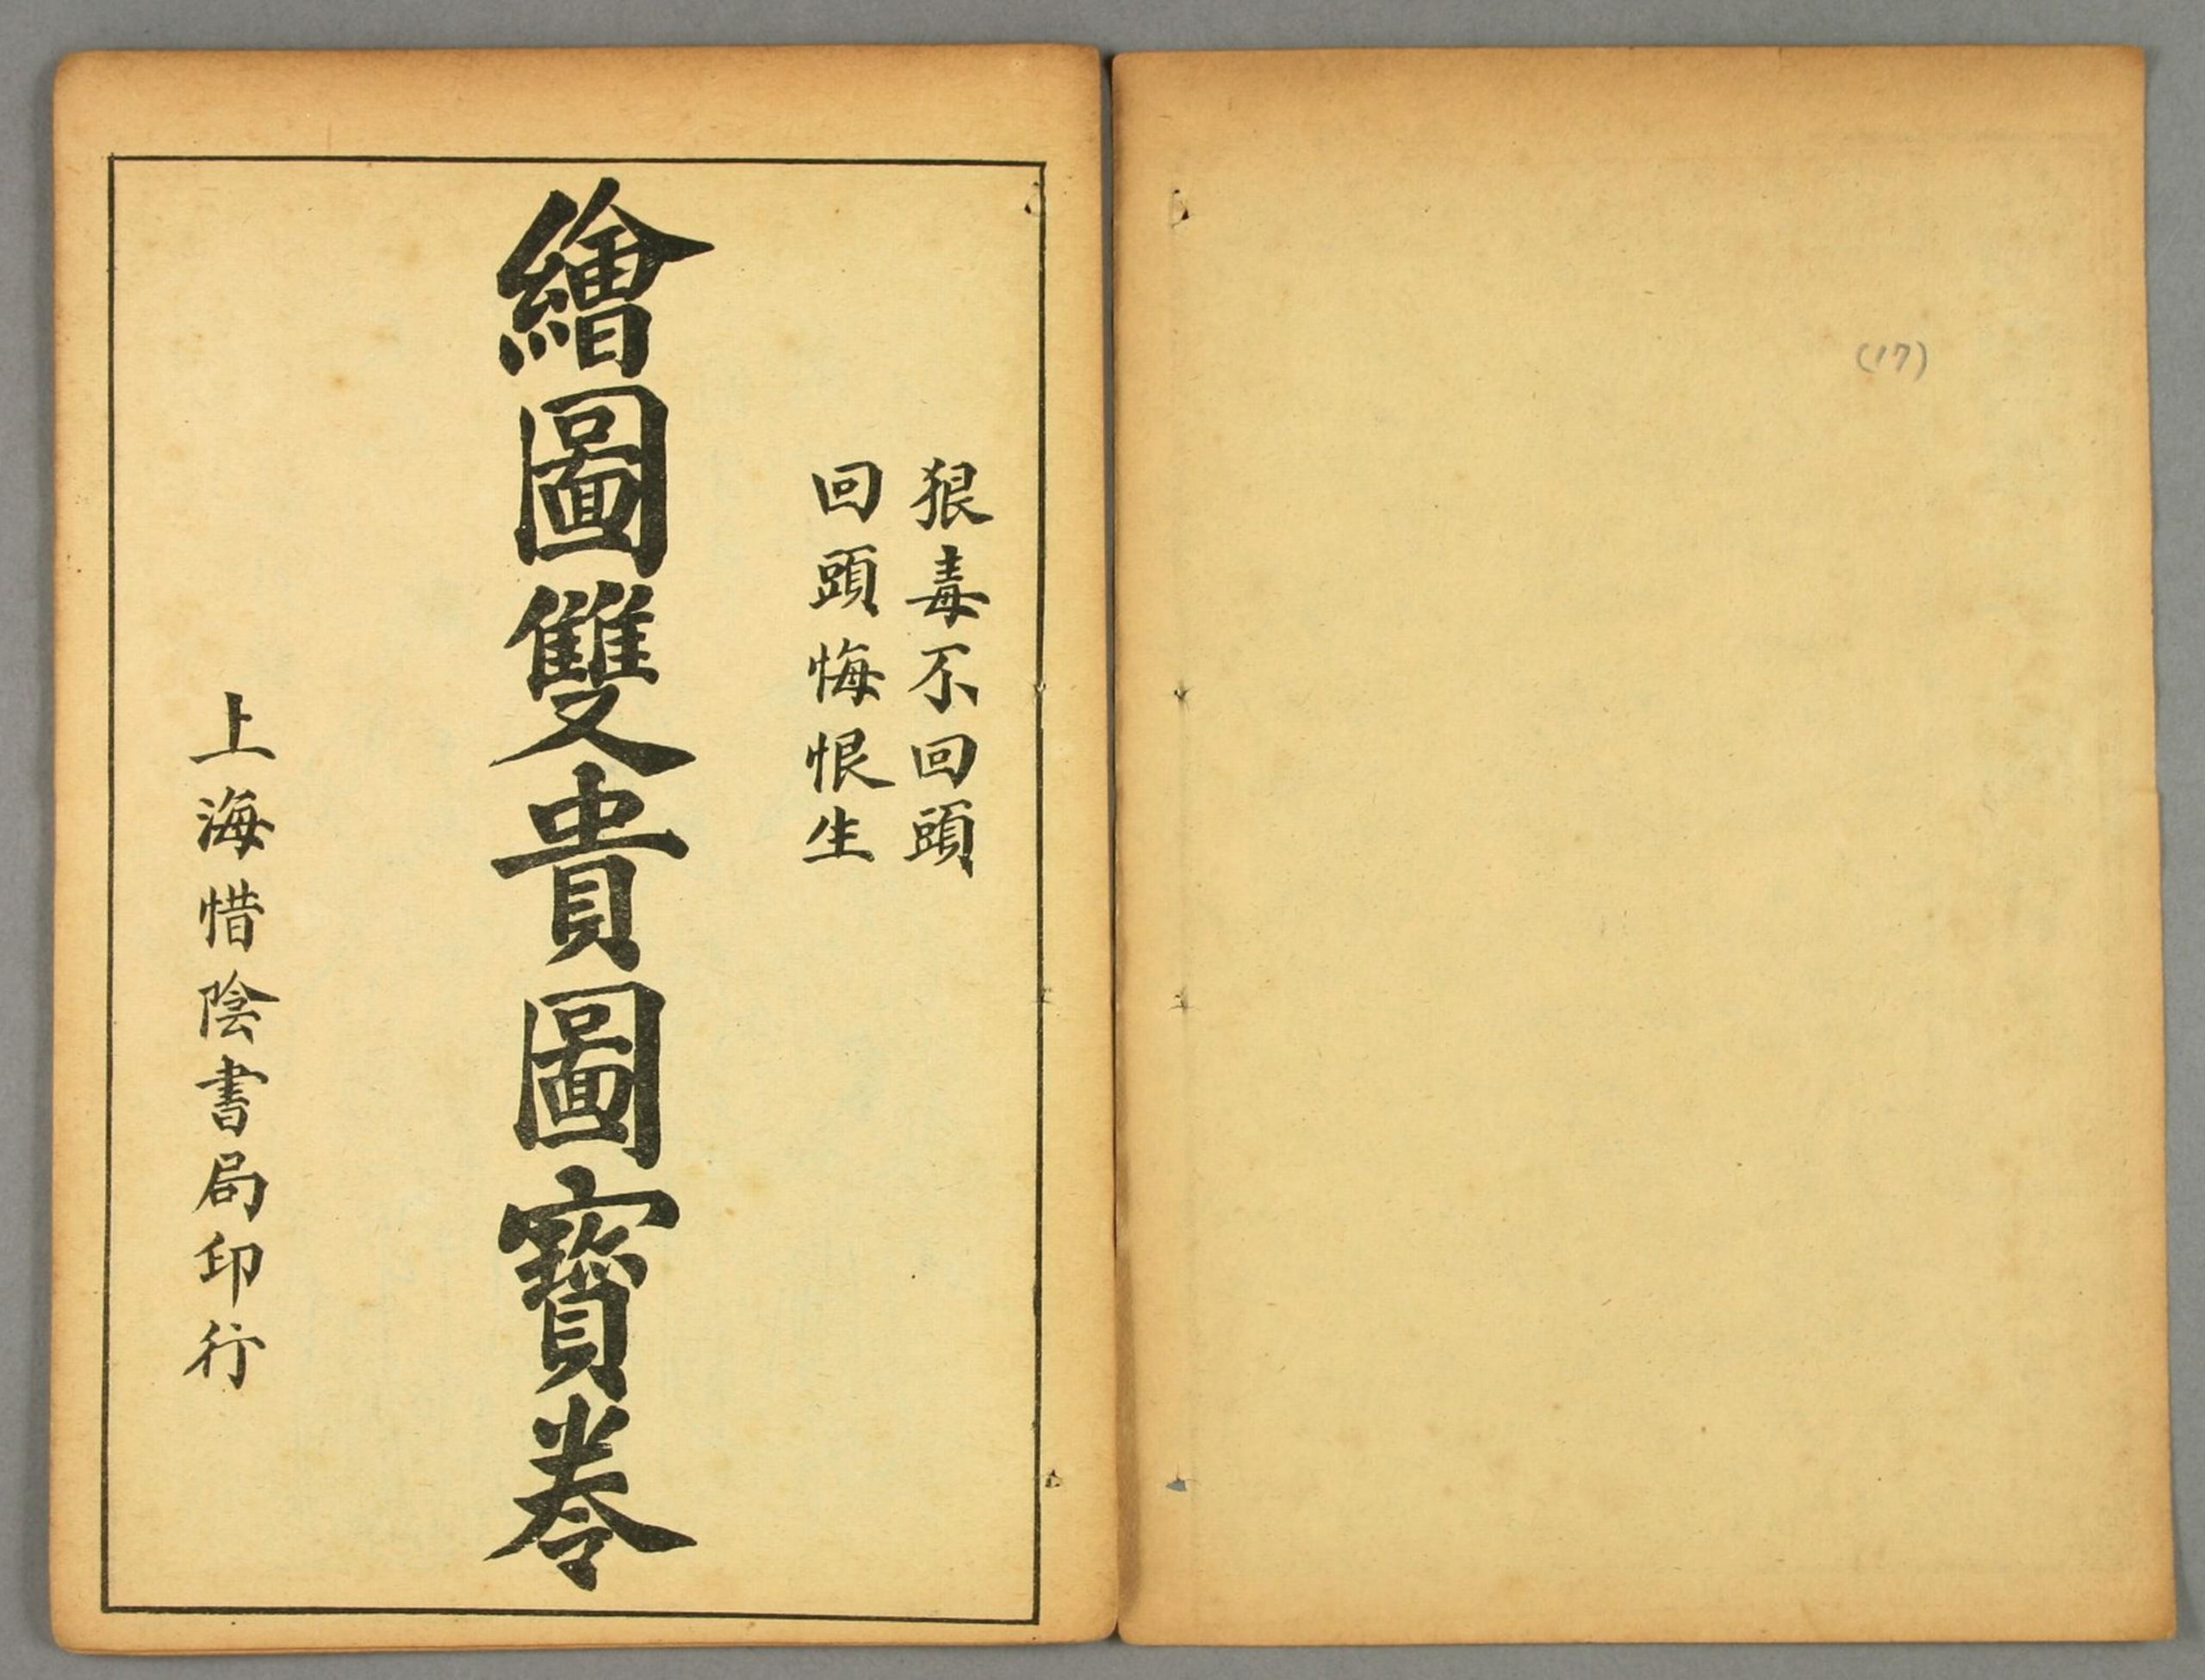 (17)
狠毒不回頭
回頭悔恨生
繪圖雙貴圖寶卷
上海惜陰書局印行